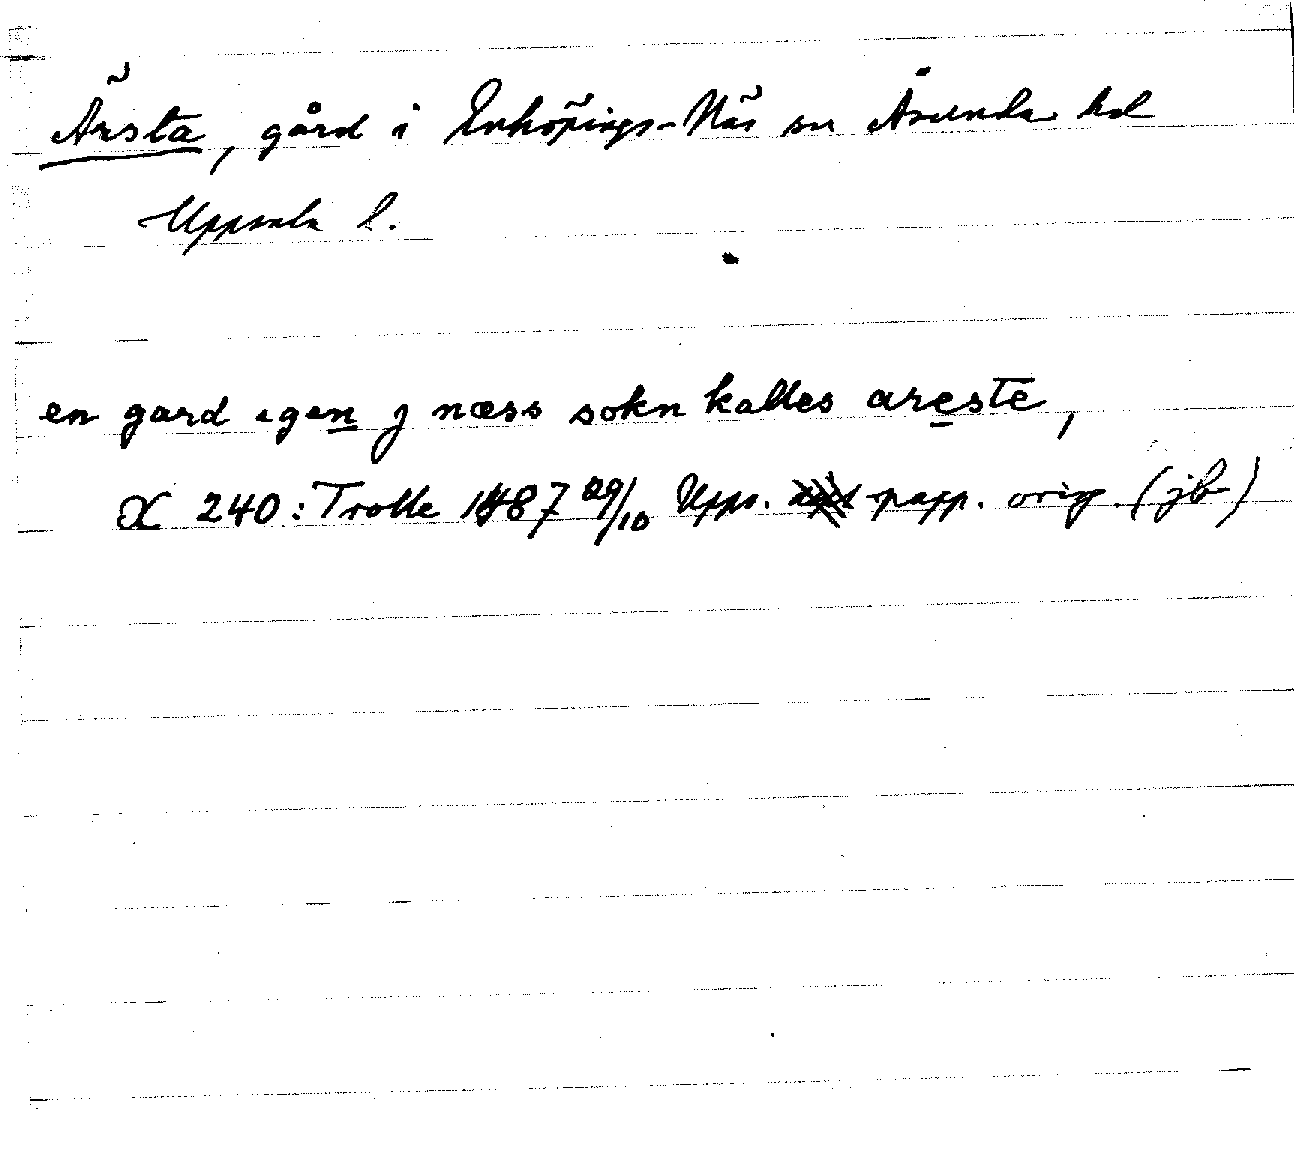 Ärsta, gård i Enköpings-Näs sn Åsunda hd
Uppsala l.
en gard egen j næss sokn kalles areste,
X 240: Trolle 1487 29/10 Upps. papp. orig. (jb)